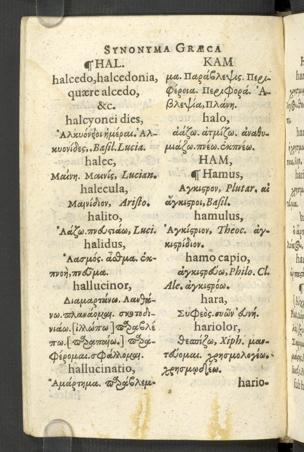 SYNONYMA GRÆCA
¶HAL.
halcedo, halcedonia,
quære alcedo,
&c.
halcyonei dies,
Ἀλκυόνειοι ἡμέραι. Ἀλ-
κυονίδες, Basil. Lucia.
halec,
Μαίνη. Μαινίς, Lucian.
halecula,
Μαινίδιον, Aristo.
halito,
Ἀάζω. πνευστιάω, Luci.
halidus,
Ἀασμός. ἆσθμα. ἐκ-
πνοή. πνεῦμα.
hallucinor,
Διαμαρτάνω. Λανθά-
νω. πλανάομαι. σκοτοδι-
νιάω. [ἰλώπω] παραβλέ
πω. [παραπαίω] παρα-
φέρομαι. σφάλλομαι.
hallucinatio,
Ἁμάρτημα. παράβλεμ-
KAM
μα. Παράβλεψις. Περι-
φέρεια. Περιφορά. Ἀ-
βλεψία, Πλάνη.
halo,
ἀάζω. ἀτμίζω. ἀναθυ-
μιάζω. πνέω. ἐκπνέω.
HAM,
¶ Hamus,
Ἄγκιστρον, Plutar. αἱ
ἄγκιστροι, Basil.
hamulus,
Ἀγκίστριον, Theoc. ἀγ-
κιστρίδιον.
hamo capio,
ἀγκιστρεύω, Philo. Cl.
Ale. ἀγκιστρόω.
hara,
Συφεός. συῶν εὐνή.
hariolor,
θεσπίζω, Xiph. μαν-
τεύομαι. χρησμολογέω.
χρησμῳδέω.
hario-